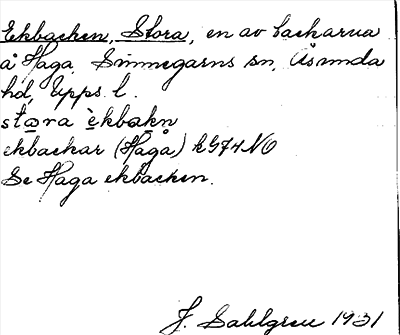 Ekbacken, Stora, en av backarna
å Haga, Simmegarns sn, Åsunda
hd, Upps. l.
stora èkbakn
ekbackar (Haga) k GFH NO
Se Haga ekbacken.
J. Sahlgren 1931